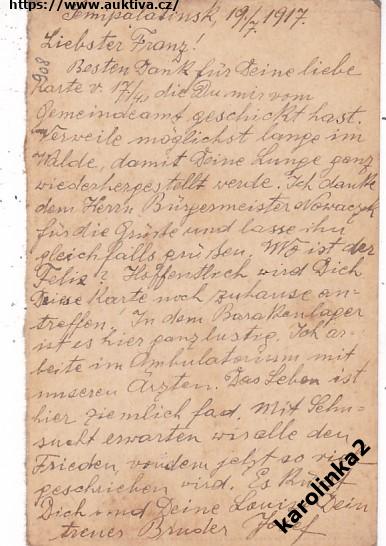 https://www.auktiva.cz/
Semipalatinsk, 19./7. 1917.
Liebster Franz!
908
Besten Dank für Deine liebe
Karte v. 17/4, die Du mir vom
Gemeindeamt geschickt hast.
Verweile möglichst lange im
Walde, damit Deine Lunge ganz
wiederhergestellt werde. Ich danke
dem Herrn Bürgermeister Nowaczek
für die Grüße und lasse ihn
gleichfalls grüßen. Wo ist der
Felix? Hoffentlich wird Dich
Diese Karte noch zuhause an-
treffen. In dem Barakenlager
ist es hier ganz lustig. Ich ar-
beite im Ambulatorium mit
unseren Ärzten. Das Leben ist
hier ziemlich fad. Mit Sehn-
sucht erwarten wir alle den
Frieden, von dem jetzt so viel
geschrieben wird. Es küßt
Dich und Deine Louise Dein
treuer Bruder
karolinka2